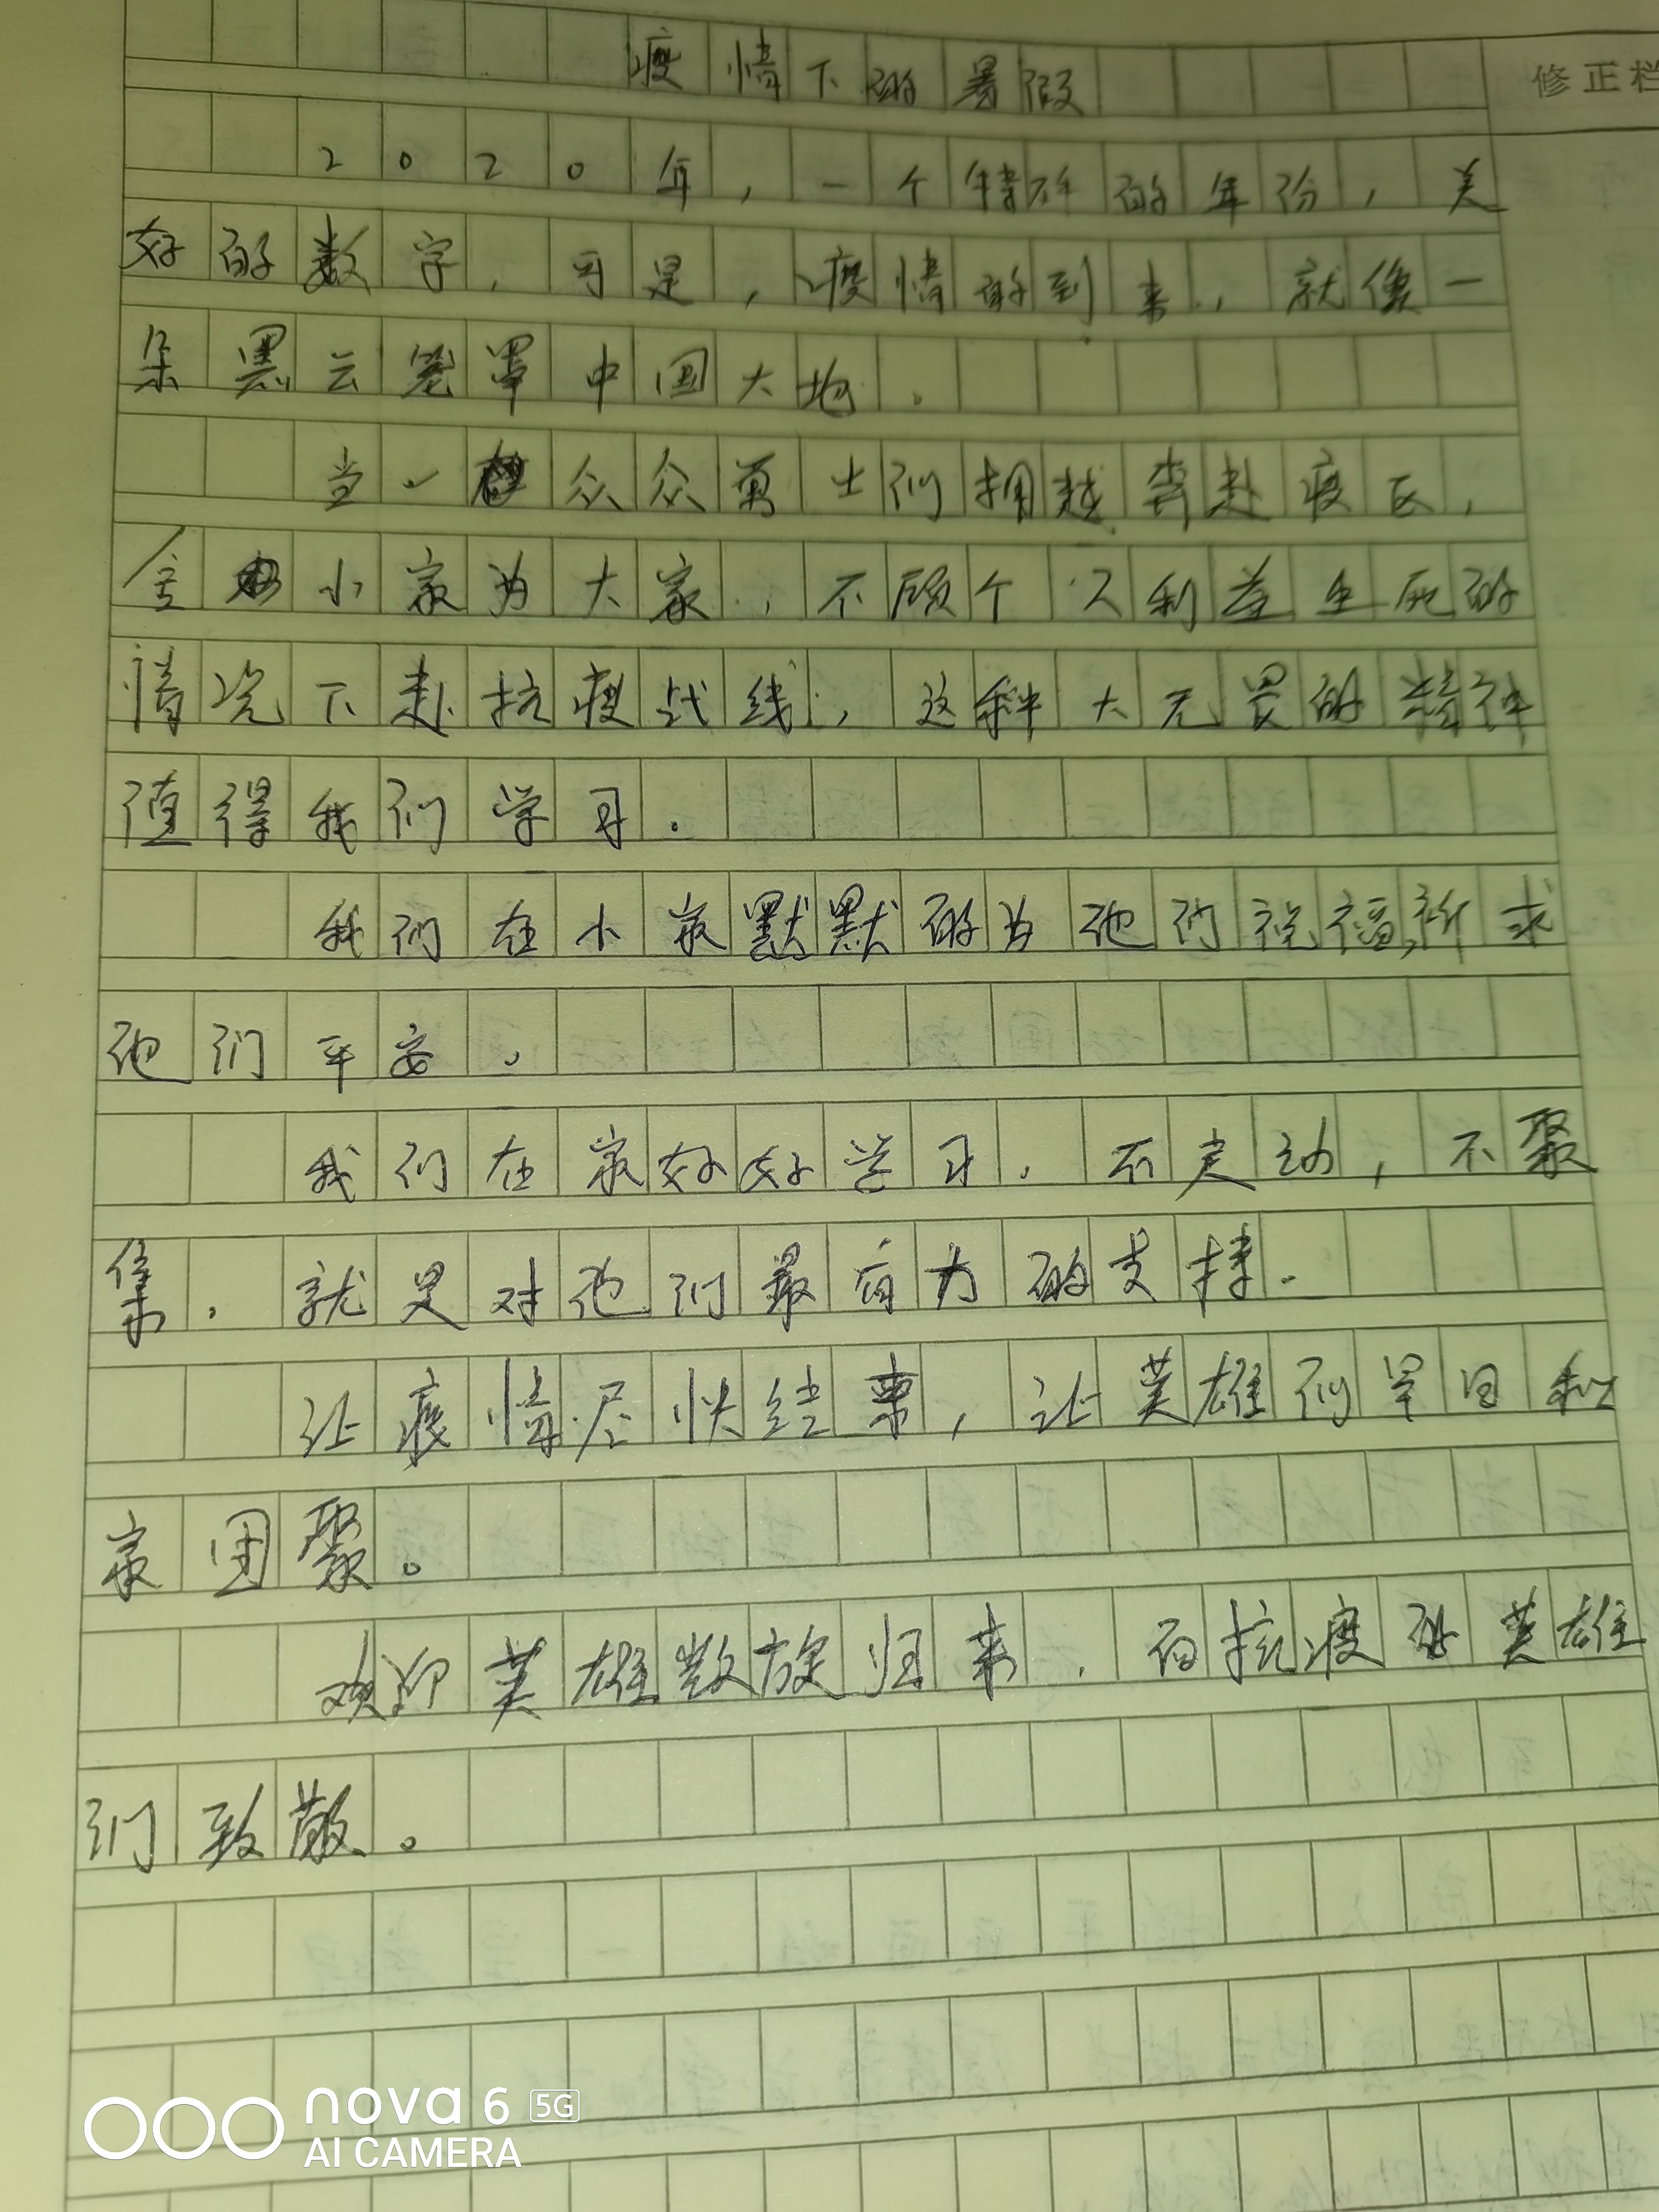 疫情下的暑假
修正栏
2020年,一个特殊的年份,美
好的数字,可是,疫情的到来,就像一
朵黑云笼罩中国大地.
当一众众勇士们拥越奔赴疫区,
舍小家为大家,不顾个人利益生死的
情况下赴抗疫战线,这种大无畏的精神
值得我们学习.
我们在小家默默的为他们祝福,祈求
他们平安。
我们在家好好学习.不走动,不聚
集.就是对他们最有力的支持.
让疫情尽快结束,让英雄们早日和
家团聚。
欢迎英雄凯旋归来.向抗疫的英雄
们致敬。
nova 6 5G
AI CAMERA